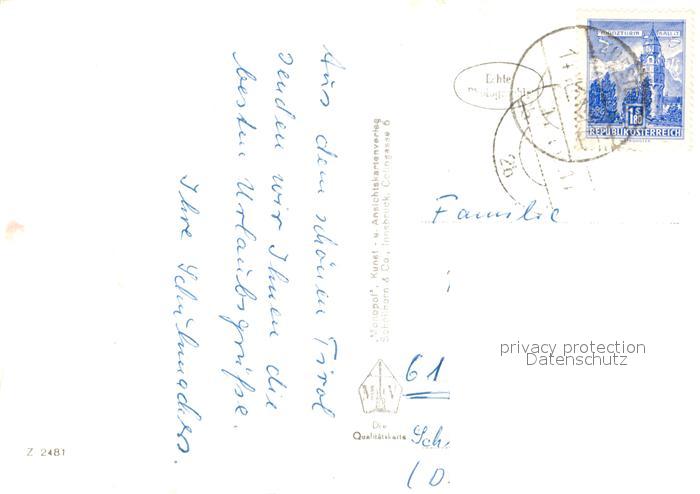 Aus dem schönen Tirol
senden wir Ihnen die
besten Urlaubsgrüsse.
Ihre
"Monopol", Kunst- u. Ansichtskartenverlag
Schöllhorn & Co., Innsbruck, Colingasse 6
Die
Qualitätskarte
Z 2481
Echte
MÜNZTURM HALL i.T.
1S80
REPUBLIK ÖSTERREICH
2b
Familie
61
Sch
(D.
privacy protection
Datenschutz